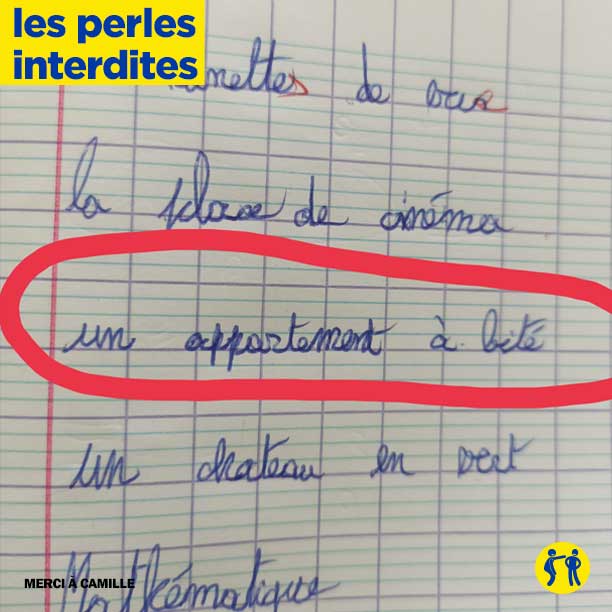 les perles
interdites
de vue
la place de cinéma
un appartement à bité
un chateau en vert
Mathématique
MERCI À CAMILLE